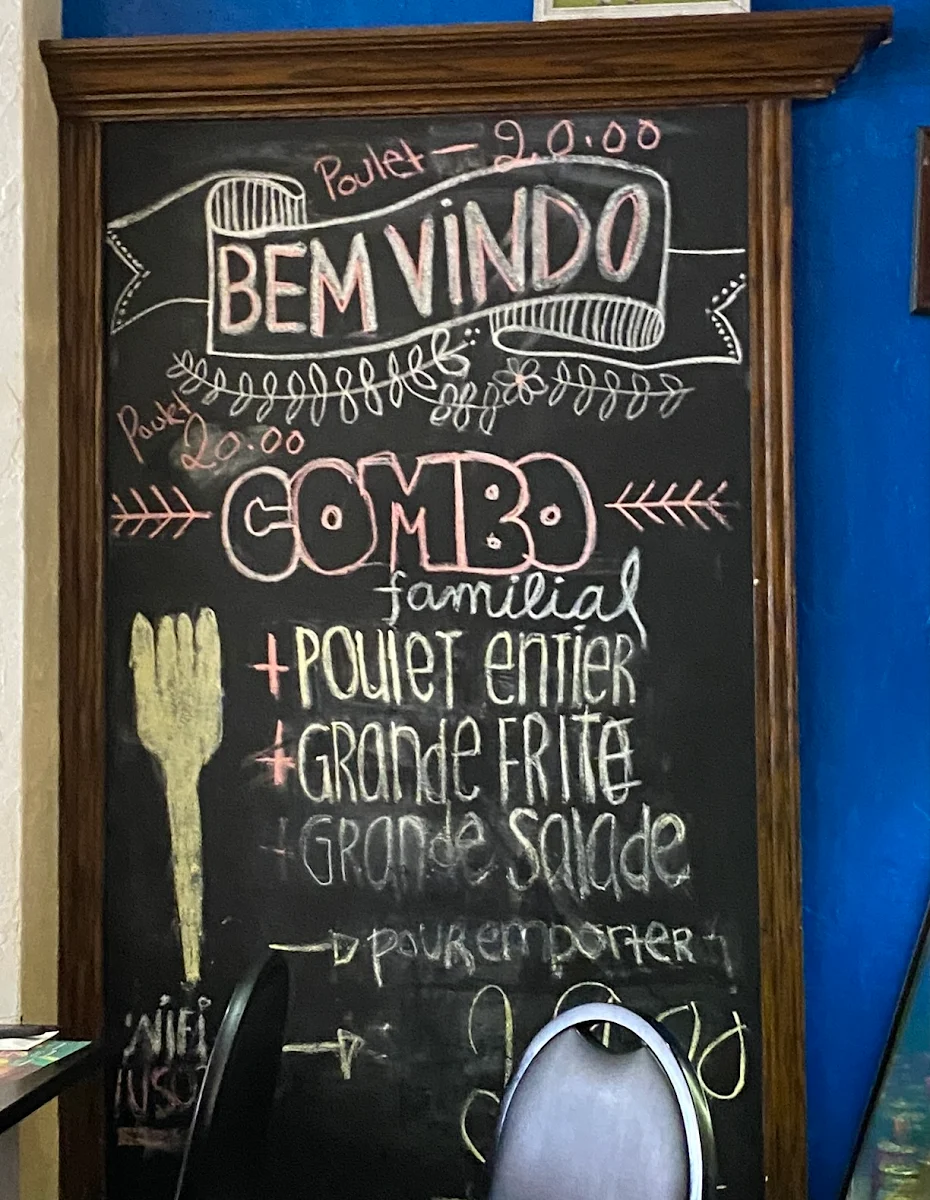 Poulet — 20.00
BEM VINDO
Poulet
20.00
COMBO
familial
+ POULET ENTIER
+ GRANDE FRITE
+ GRANDE SALADE
POUR EMPORTER